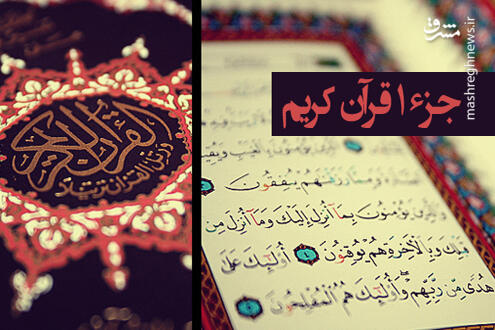 مشرق
mashreghnews.ir
جزء ۱ قرآن کریم
القرآن الكريم
ورتل القرآن ترتيلا
يُؤْمِنُونَ بِالْغَيْبِ وَيُقِيمُ
وَمِمَّا رَزَقْنَاهُمْ يُنْفِقُونَ
يُؤْمِنُونَ بِمَا أُنْزِلَ إِلَيْكَ وَمَا أُنْزِلَ مِنْ
قَبْلِكَ وَبِالْآخِرَةِ هُمْ يُوقِنُونَ ٤ أُولَٰئِكَ عَلَىٰ
هُدًى مِنْ رَبِّهِمْ وَأُولَٰئِكَ هُمُ الْمُفْلِحُونَ